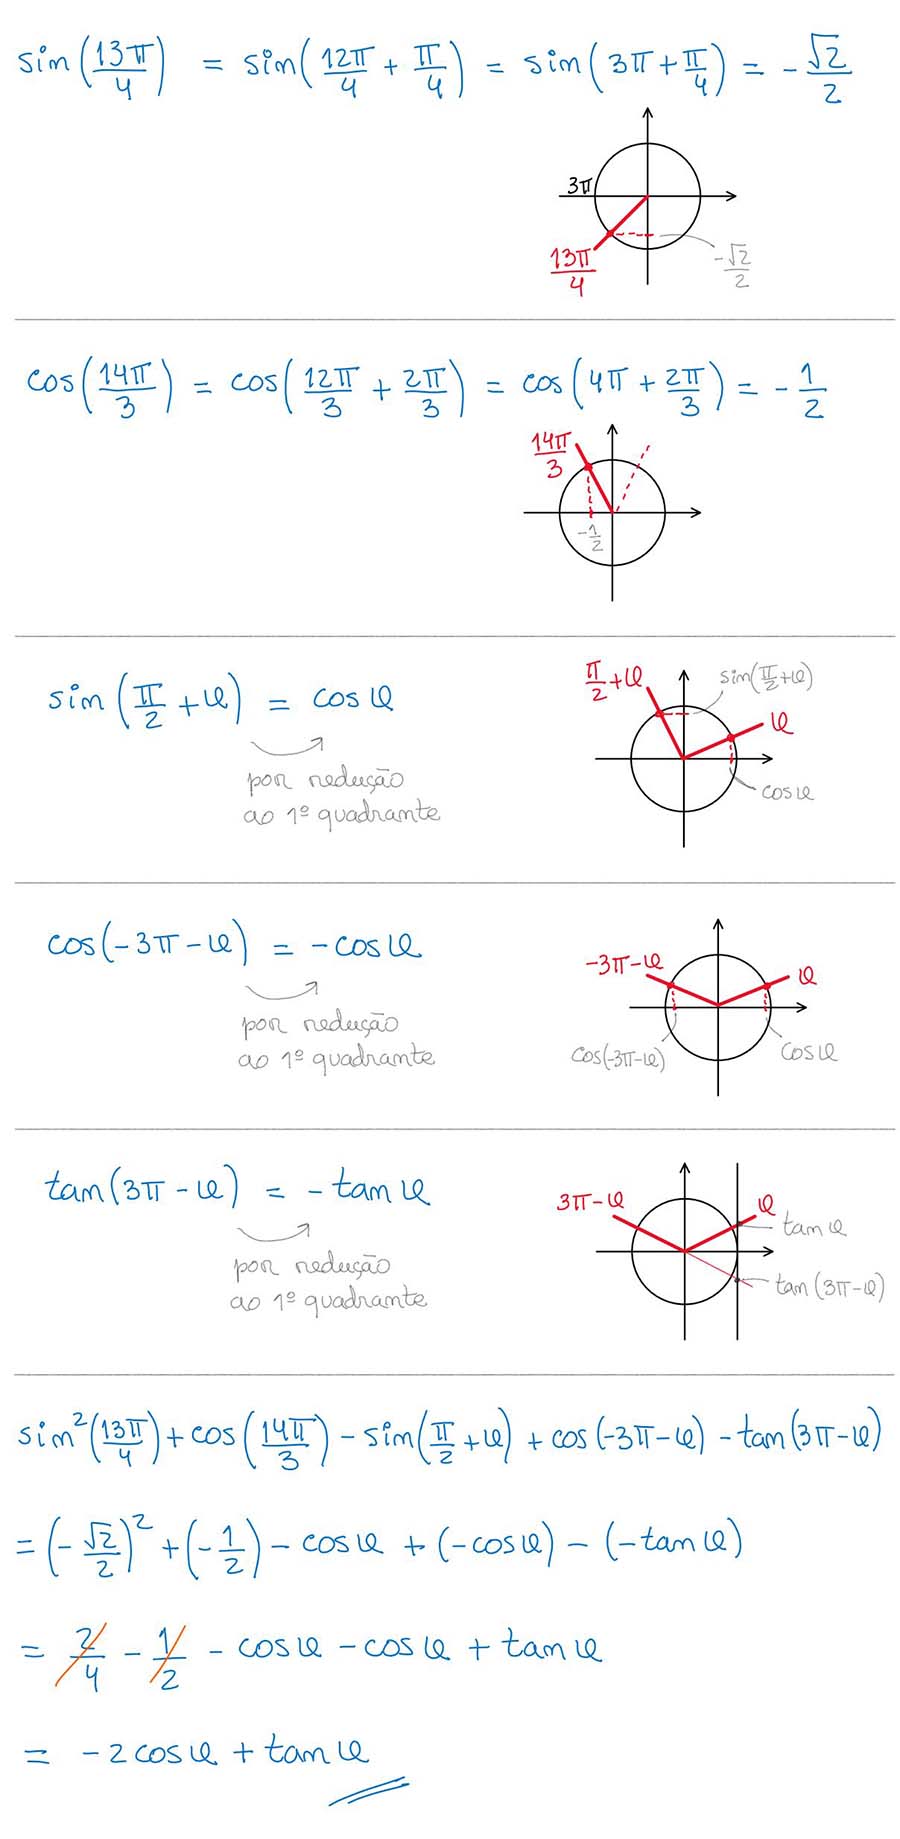 sin(13π/4) = sin(12π/4 + π/4) = sin(3π + π/4) = -√2/2
3π
13π/4
-√2/2
cos(14π/3) = cos(12π/3 + 2π/3) = cos(4π + 2π/3) = -1/2
14π/3
-1/2
sin(π/2 + φ) = cos φ
por redução
ao 1º quadrante
π/2 + φ
sin(π/2 + φ)
φ
cos φ
cos(-3π - φ) = -cos φ
por redução
ao 1º quadrante
-3π - φ
φ
cos(-3π - φ)
cos φ
tan(3π - φ) = -tan φ
por redução
ao 1º quadrante
3π - φ
φ
tan φ
tan(3π - φ)
sin²(13π/4) + cos(14π/3) - sin(π/2 + φ) + cos(-3π - φ) - tan(3π - φ)
= (-√2/2)² + (-1/2) - cos φ + (-cos φ) - (-tan φ)
= 2/4 - 1/2 - cos φ - cos φ + tan φ
= -2 cos φ + tan φ